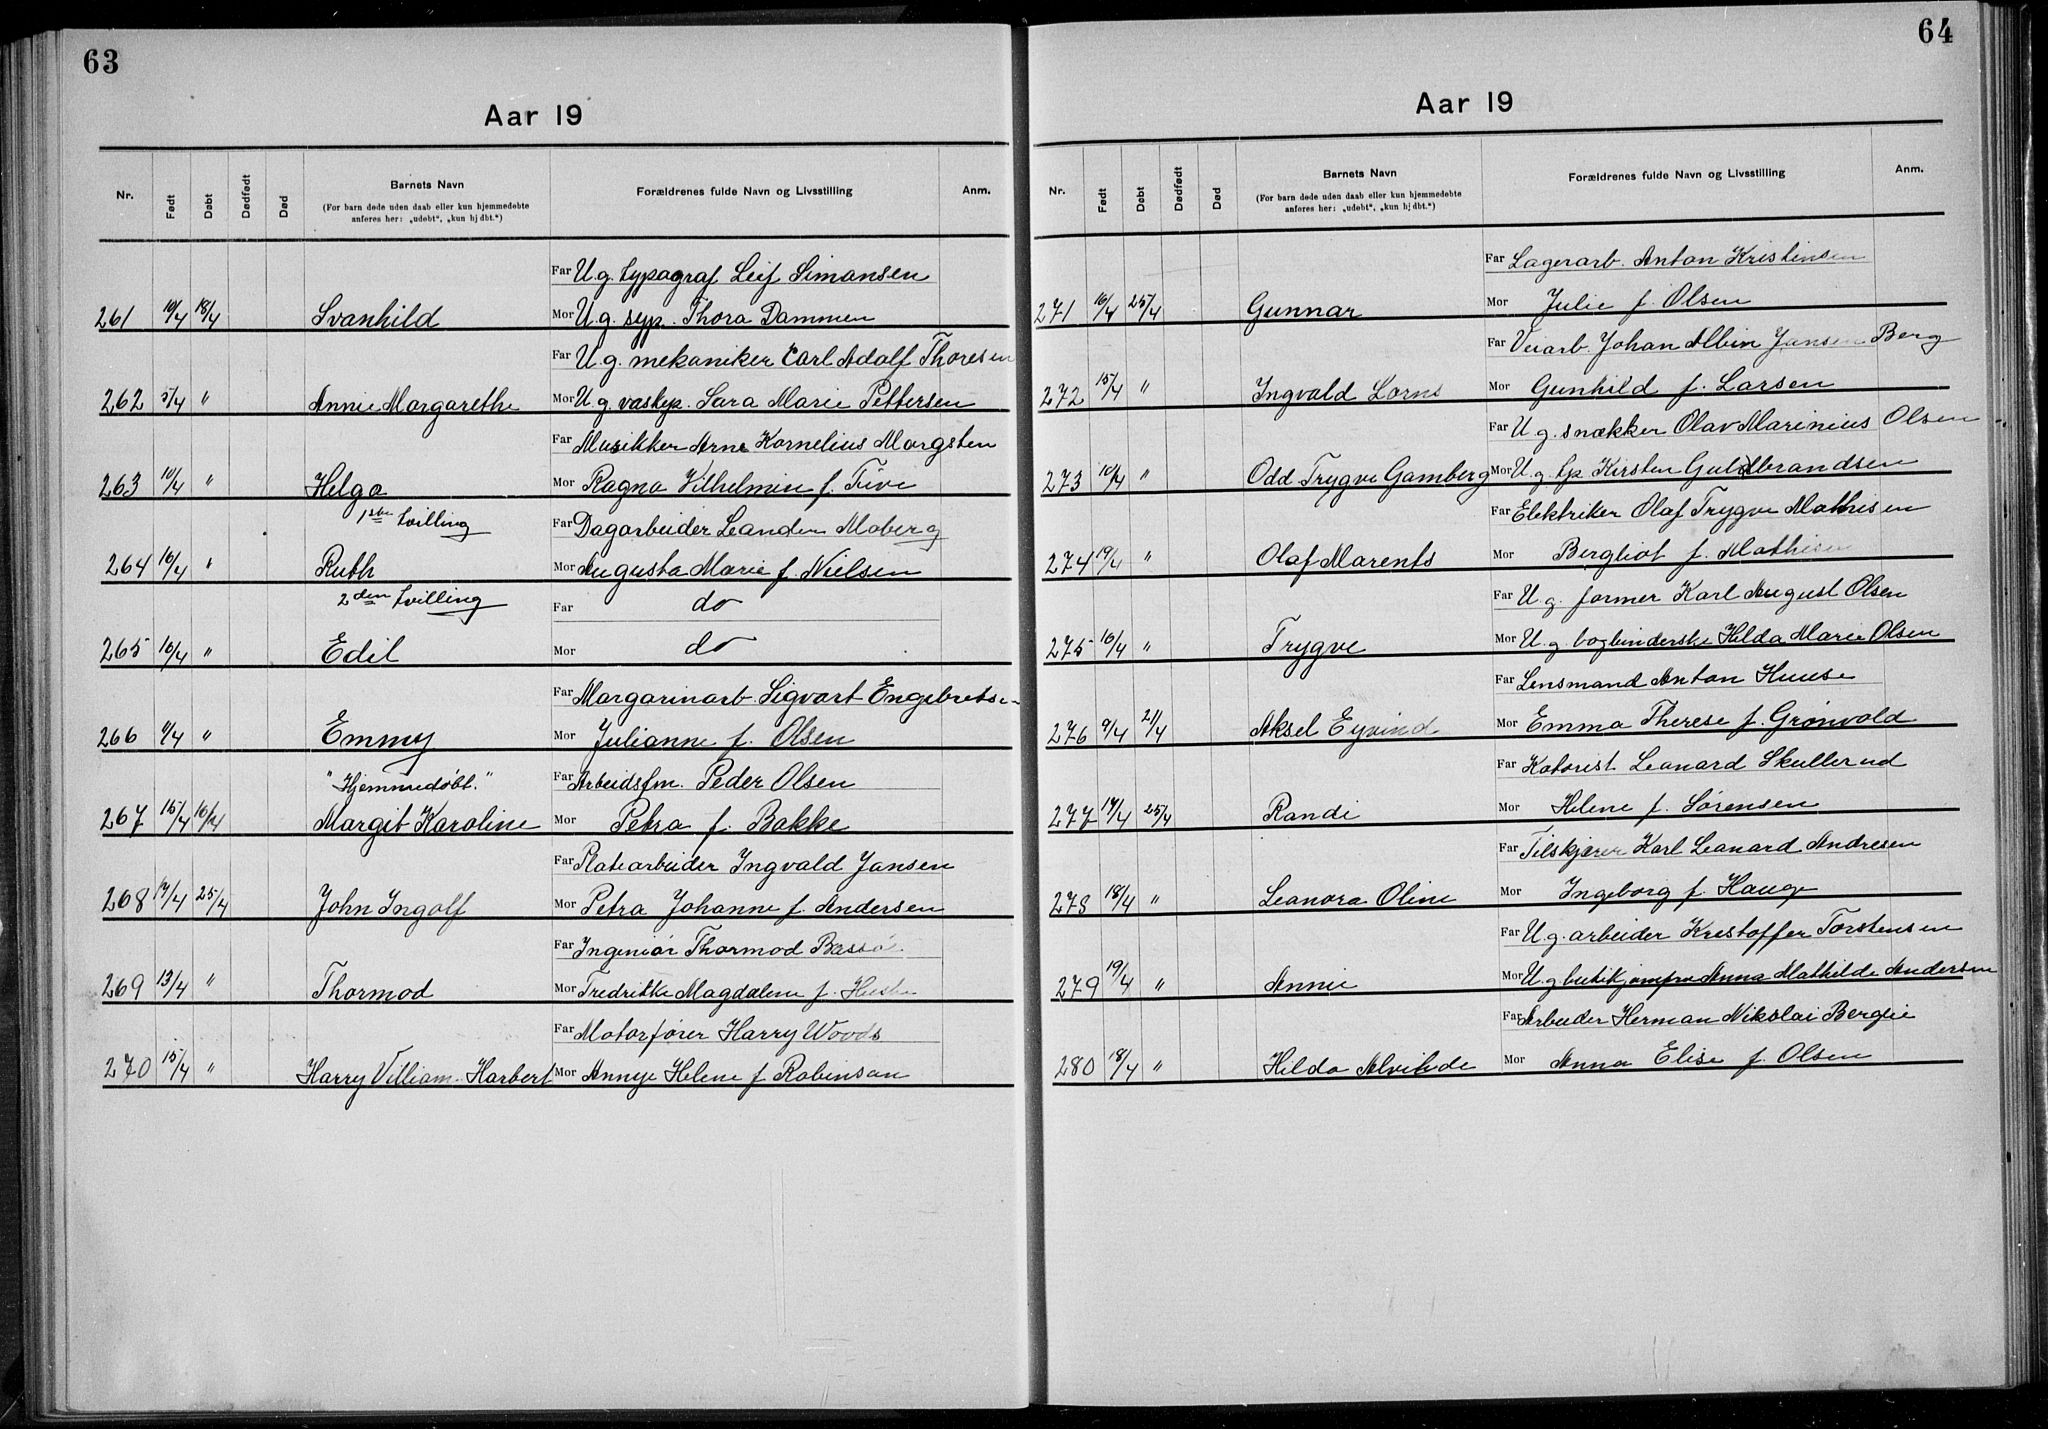 63
Aar 19
Nr. Født Døbt Dødfødt Død Barnets Navn Forældrenes fulde Navn og Livsstilling Anm.
(For barn døde uden daab eller kun hjemmedøbte
anføres her: „udøbt“, „kun hj dbt.“)
Far U.g. typograf Leif Simonsen
261 10/4 18/4 Svanhild Mor U.g. syp. Thora Dammen
Far U.g. mekaniker Carl Adolf Thoresen
262 5/4 " Annie Margarethe Mor U.g. vaskep. Sara Marie Pettersen
Far Musikker Arne Kornelius Morgsten
263 10/4 " Helga Mor Ragna Vilhelmine f.
1ste tvilling Far Dagarbeider Leander Moberg
264 16/4 " Ruth Mor Augusta Marie f. Nielsen
2den tvilling Far do
265 16/4 " Edil Mor do
Far Margarinarb. Sigvart
266 " Emmy Mor Julianne f. Olsen
"Hjemmedøbt." Far Arbeidsfm. Peder Olsen
267 15/4 16/4 Margit Karoline Mor Petra f. Bakke
Far Platearbeider Ingvald Jansen
268 17/4 25/4 John Ingolf Mor Petra Johanne f. Andersen
Far Ingeniør Thormod Bassø
269 13/4 " Thormod Mor Fredrikke Magdalene f.
Far Motorfører Harry Woods
270 15/4 " Harry Villiam Harbert Mor Annye Helene f. Robinson
64
Aar 19
Nr. Født Døbt Dødfødt Død Barnets Navn Forældrenes fulde Navn og Livsstilling Anm.
(For barn døde uden daab eller kun hjemmedøbte
anføres her: „udøbt“, „kun hj dbt.“)
Far Lagerarb. Anton Kristinsen
271 16/4 25/4 Gunnar Mor Julie f. Olsen
Far Veiarb. Johan Albin Jansen Berg
272 15/4 " Ingvald Mor Gunhild f. Larsen
Far U.g. snækker Olav Marinius Olsen
273 10/4 " Odd Trygve Gamberg Mor U.g. tp. Kirsten Guldbrandsen
Far Elektriker Olaf Trygve Mathisen
274 19/4 " Olaf Marents Mor Bergliot f. Mathisen
Far U.g. former Karl August Olsen
275 16/4 " Trygve Mor U.g. bogbinderske Hilda Marie Olsen
Far Lensmand Anton Huuse
276 9/4 21/4 Aksel Eyvind Mor Emma Therese f. Grønvold
Far Kotorist Leonard Skullerud
277 17/4 25/4 Randi Mor Helene f. Sørensen
Far Tilskjærer Karl Leonard Andresen
278 18/4 " Leonora Oline Mor Ingeborg f. Hauge
Far U.g. arbeider Kristoffer Torstensen
279 19/4 " Annie Mor U.g. butikjomfru Anna Mathilde Andersen
Far Arbeider Herman Nikolai Bergie
280 18/4 " Hilda Alvilde Mor Anna Elise f. Olsen